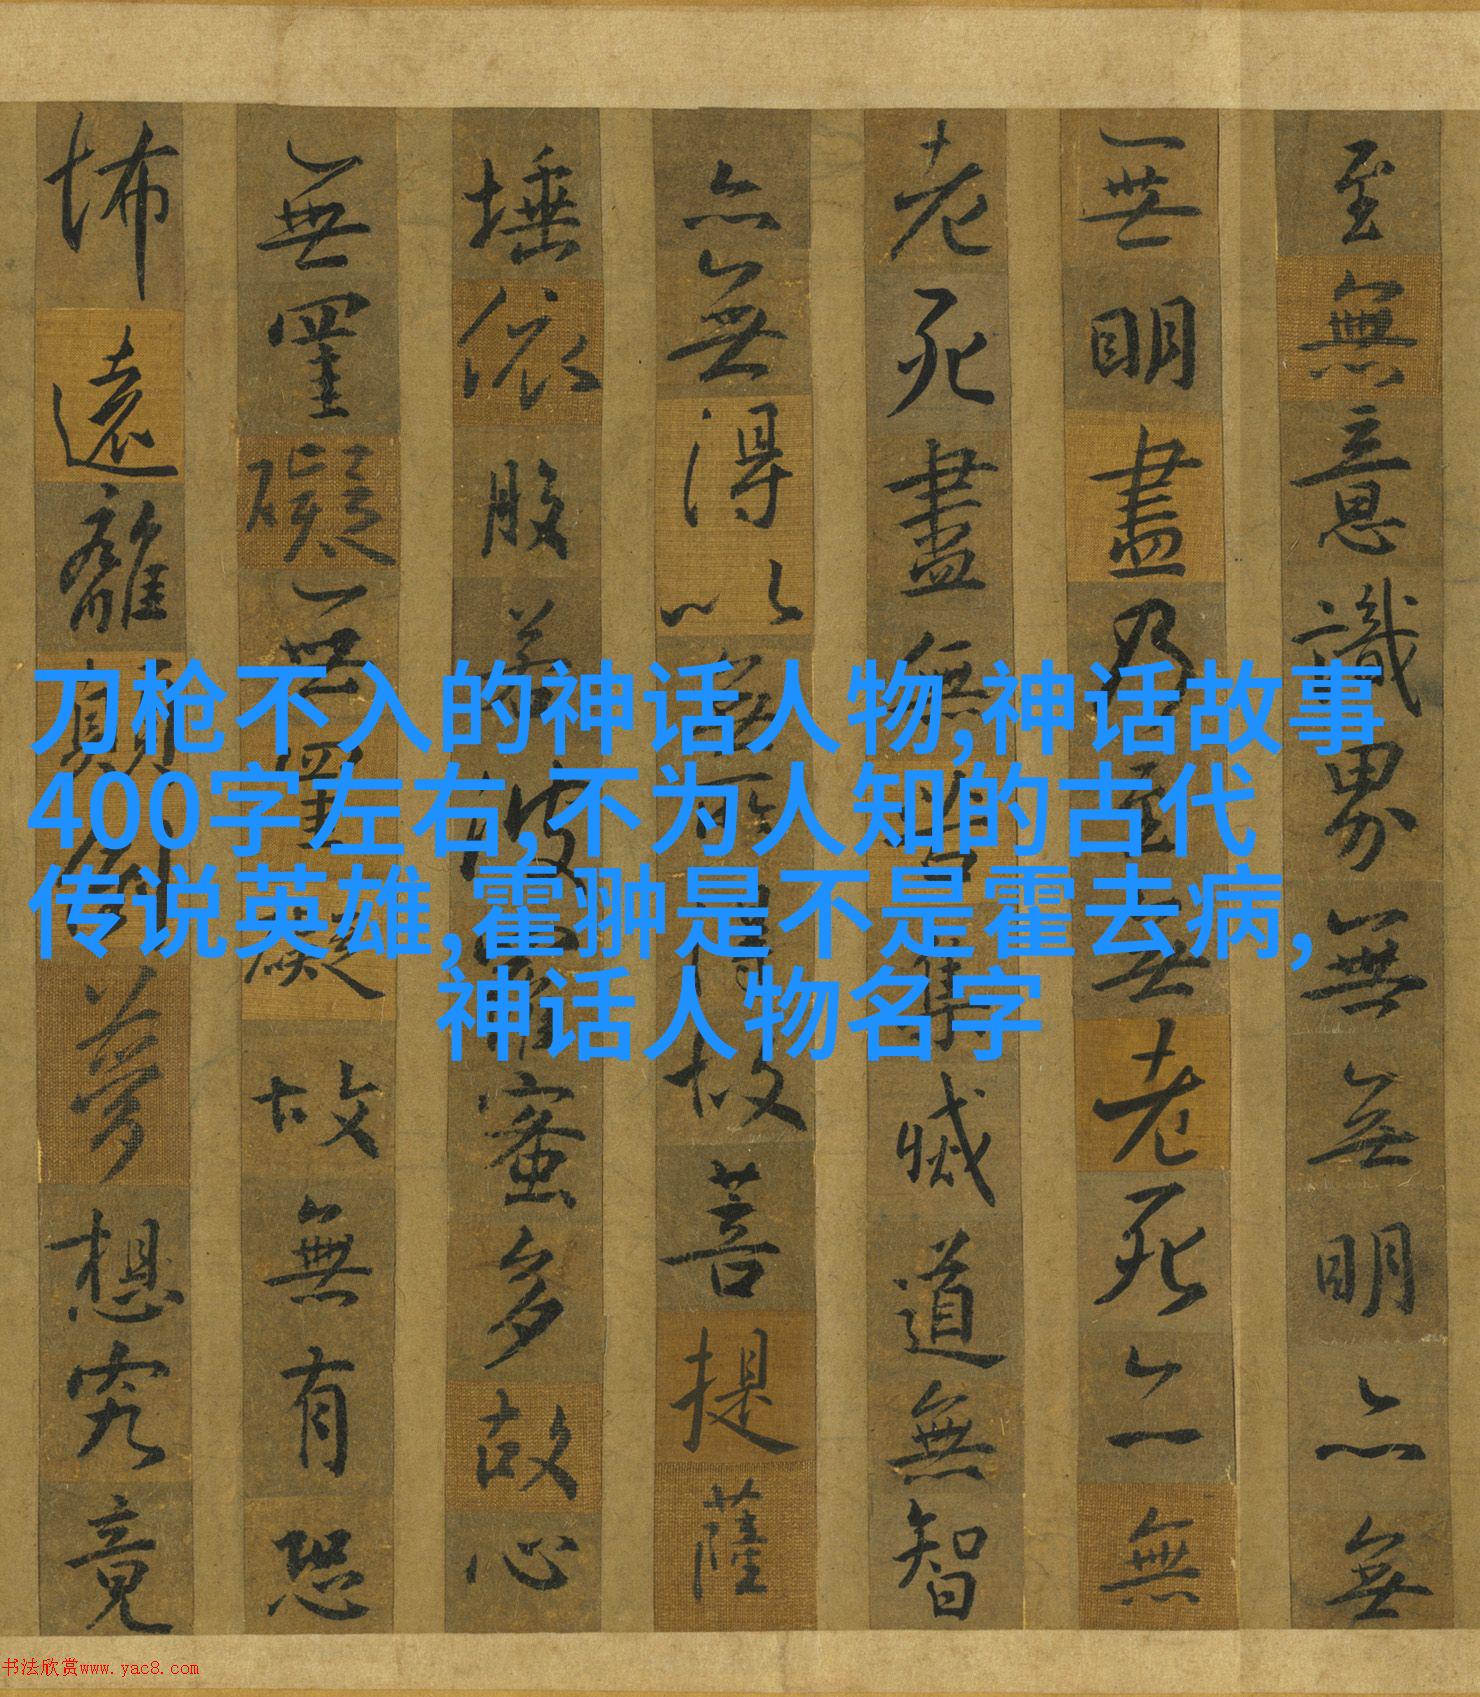 至無意識界無無明亦無
無明盡乃至無老死亦無
老死盡無苦集滅道無智
亦無得以無所得故菩提薩
埵依般若波羅蜜多故心
無罣礙無罣礙故無有恐
怖遠離顛倒夢想究竟
刀枪不入的神话人物,神话故事
400字左右,不为人知的古代
传说英雄,霍翀是不是霍去病,
神话人物名字
书法欣赏www.yac8.com